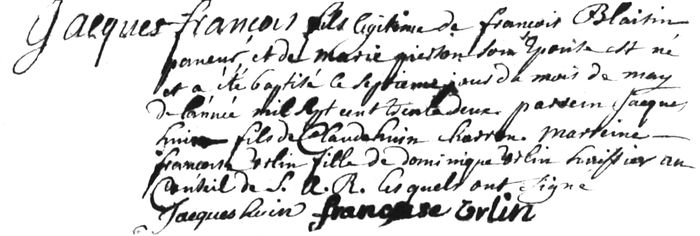 Jacques françois fils legitime de françois Blaisin
et de marie son Epouse est né
et a été baptisé le septieme jour du mois de may
de l'année mil sept cent trente deux. parrein Jacques
huin fils de Claude huin charron. marreine
francoise Urlin fille de dominique Urlin huissier au
Conseil de S. A. R. lesquels ont signe
Jacques huin francoise Urlin